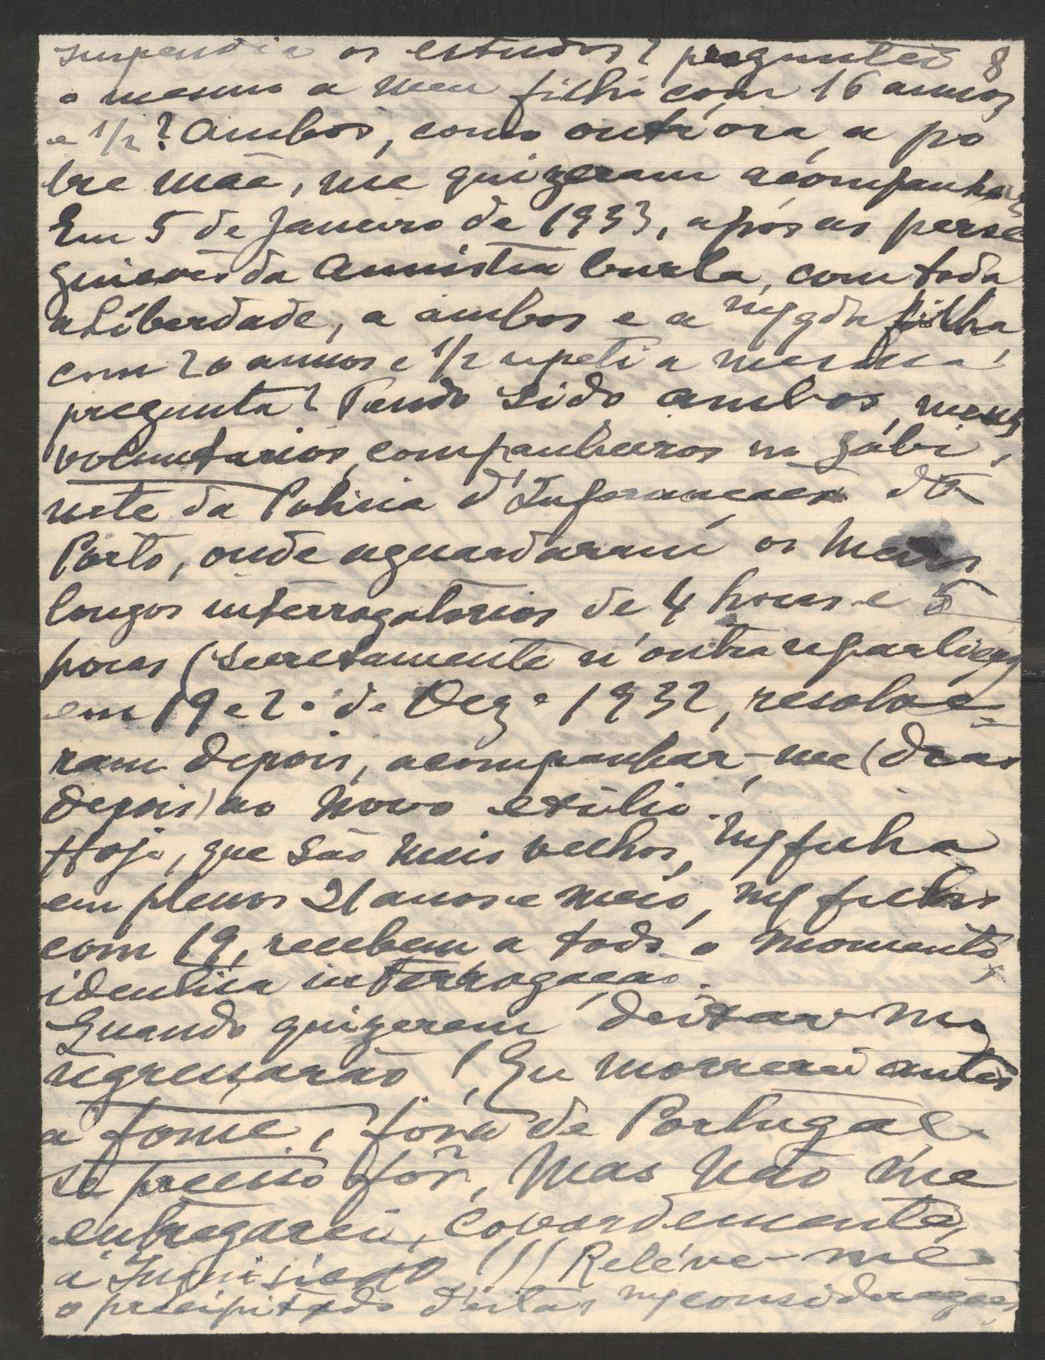 suspendia os estudos? perguntei 8
o mesmo a meu filho com 16 annos
e 1/2? Ambos, como outr'ora, a po
bre mãe, me quizeram acompanhar
Em 5 de Janeiro de 1933, após as perse
guições da Amnistia burla, com toda
a Liberdade, a ambos e a filha
com 20 annos e 1/2 repeti a mesma
pregunta? Tendo sido ambos, meus
voluntarios, companheiros no Gabi
nete da Policia d'Informações do
Porto, onde aguardaram os meus
longos interrogatorios de 4 horas e 5
horas (secretamente n'outra repartição
em 19 e 2 de Dez.º 1932, resolve
ram depois, acompanhar-me (dias
depois) ao novo exilio.
Hoje, que são mais velhos, mª filha
em plenos 21 anos e meio, meu filho
com 19, recebem a todo o momento,
identica interrogação.
Quando quizerem deixar-me
regressarão! Eu morrerei antes
á fome, fóra de Portugal
se preciso fôr, Mas não me
entregarei, covardemente,
á Inquisição!!! Reléve-me
o precipitado d'estas mªs considerações,